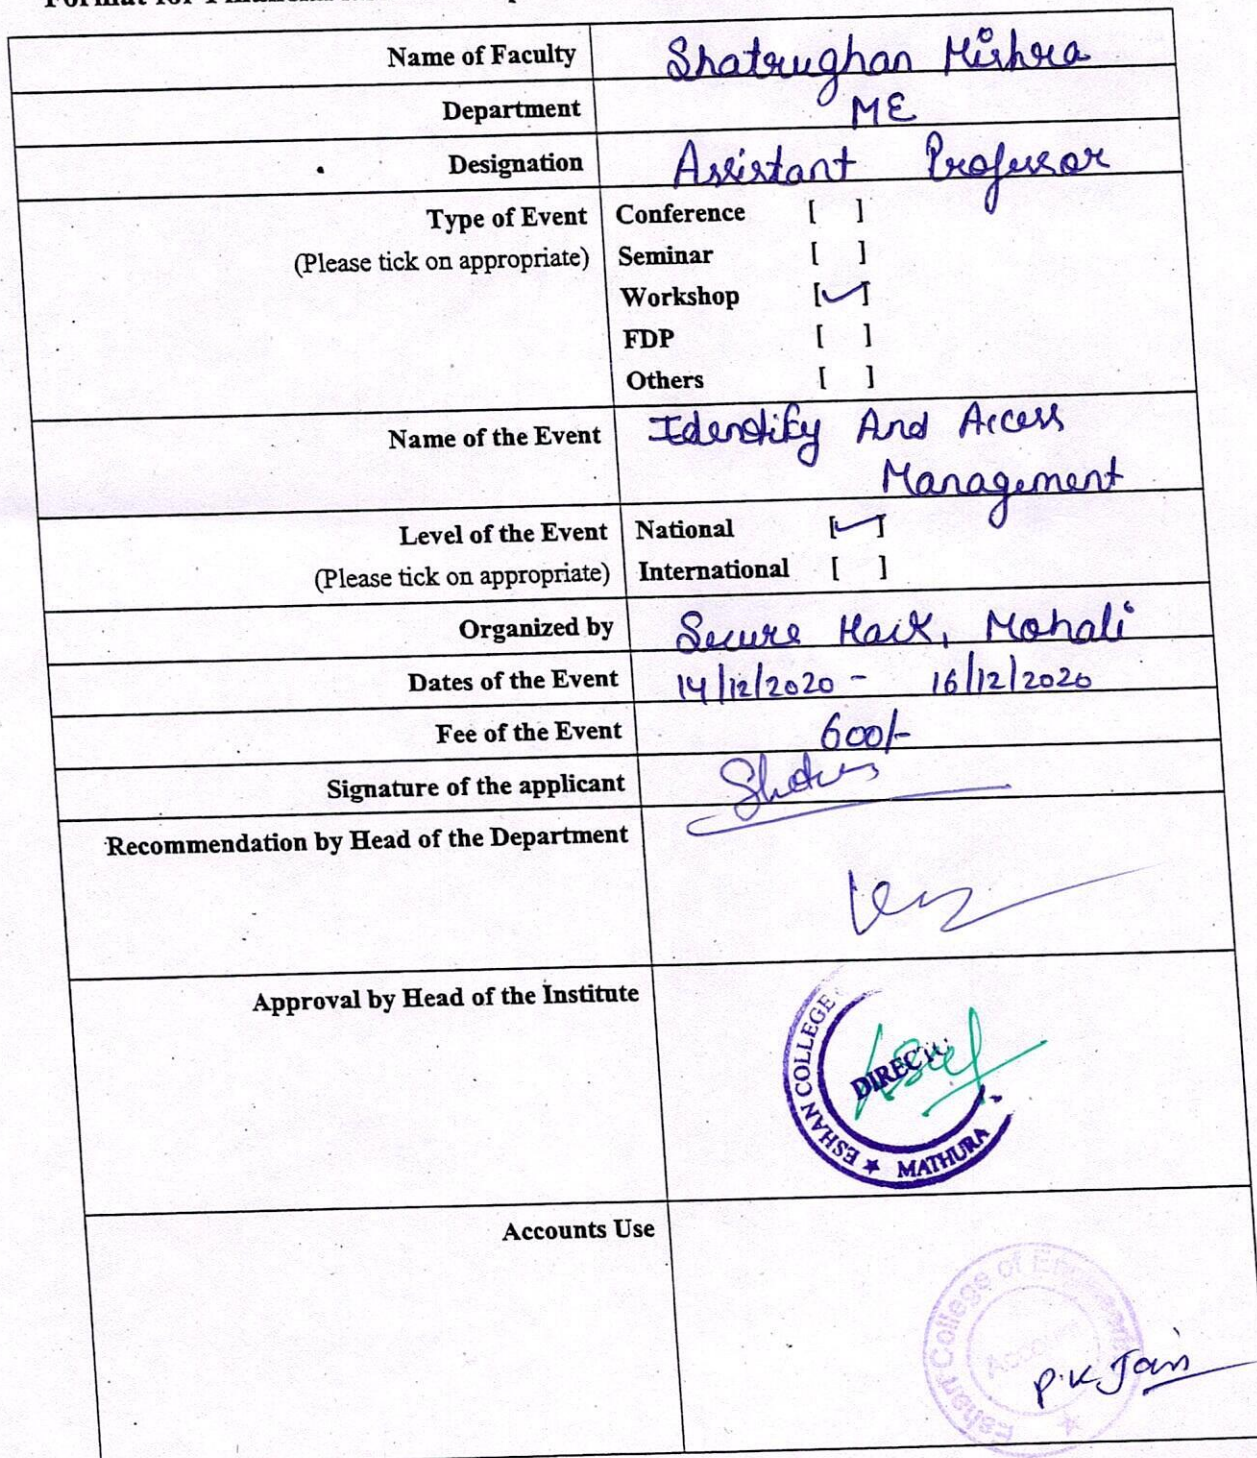 Name of Faculty Shatrughan Mishra
Department ME
Designation Assistant Professor
Type of Event Conference [ ]
(Please tick on appropriate) Seminar [ ]
Workshop [✓]
FDP [ ]
Others [ ]
Name of the Event Identify And Access
Management
Level of the Event National [✓]
(Please tick on appropriate) International [ ]
Organized by Secure Hack, Mohali
Dates of the Event 14/12/2020 - 16/12/2020
Fee of the Event 600/-
Signature of the applicant
Recommendation by Head of the Department
Approval by Head of the Institute
ESHAN COLLEGE
MATHURA
Accounts Use
Eshan College of
P.K Jain